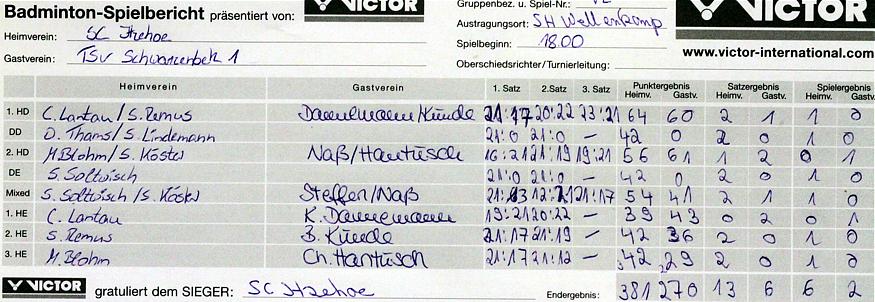 VICTOR
VICTOR
Badminton-Spielbericht präsentiert von:
Gruppenbez. u. Spiel-Nr.:
Austragungsort: SH Wellenkamp
Heimverein: SC Itzehoe
Spielbeginn: 18.00
www.victor-international.com
Gastverein: TSV Schwarzenbek 1
Oberschiedsrichter/Turnierleitung:
Heimverein Gastverein 1. Satz 2.Satz 3. Satz Punktergebnis Heimv. Gastv. Satzergebnis Heimv. Gastv. Spielergebnis Heimv. Gastv.
1. HD C. Lantau/S. Remus Dannemann/Kunde 21:17 20:22 23:21 64 60 2 1 1 0
DD D. Thams/S. Lindemann 21:0 21:0 – 42 0 2 0 1 0
2. HD M. Blohm/S. Köster Naß/Hantusch 16:21 21:19 19:21 56 61 1 2 0 1
DE S. Soltwisch 21:0 21:0 – 42 0 2 0 1 0
Mixed S. Soltwisch/S. Köster Steffen/Naß 21:03 12:21 21:17 54 41 2 1 1 0
1. HE C. Lantau K. Dannemann 19:21 20:22 – 39 43 0 2 0 1
2. HE S. Remus B. Kunde 21:17 21:19 – 42 36 2 0 1 0
3. HE M. Blohm Ch. Hantusch 21:17 21:12 – 42 29 2 0 1 0
VICTOR gratuliert dem SIEGER: SC Itzehoe Endergebnis: 381 270 13 6 6 2